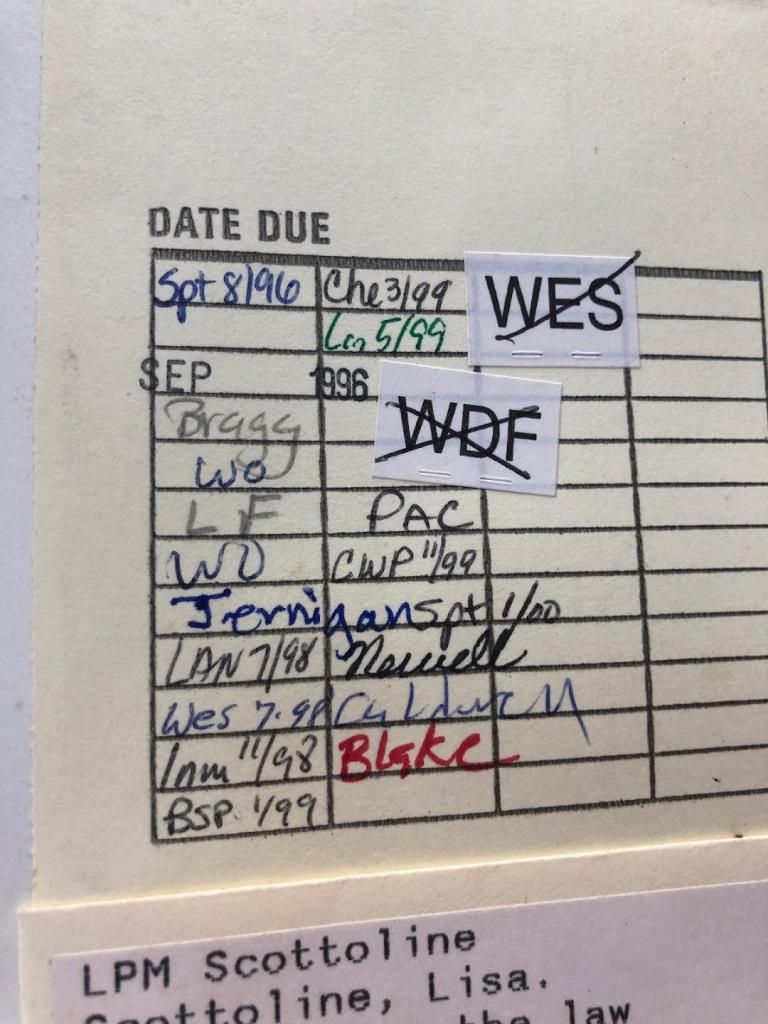 DATE DUE
Spt 8/96 Che 3/99 WES
5/99
SEP 1996
Bragg WDF
WO
LF PAC
WO CWP 11/99
Jernigan Spt 1/00
LAN 7/98 Newell
Wes 7.98 Caldwell
Inm 11/98 Blake
BSP 1/99
LPM Scottoline
Scottoline, Lisa.
the law